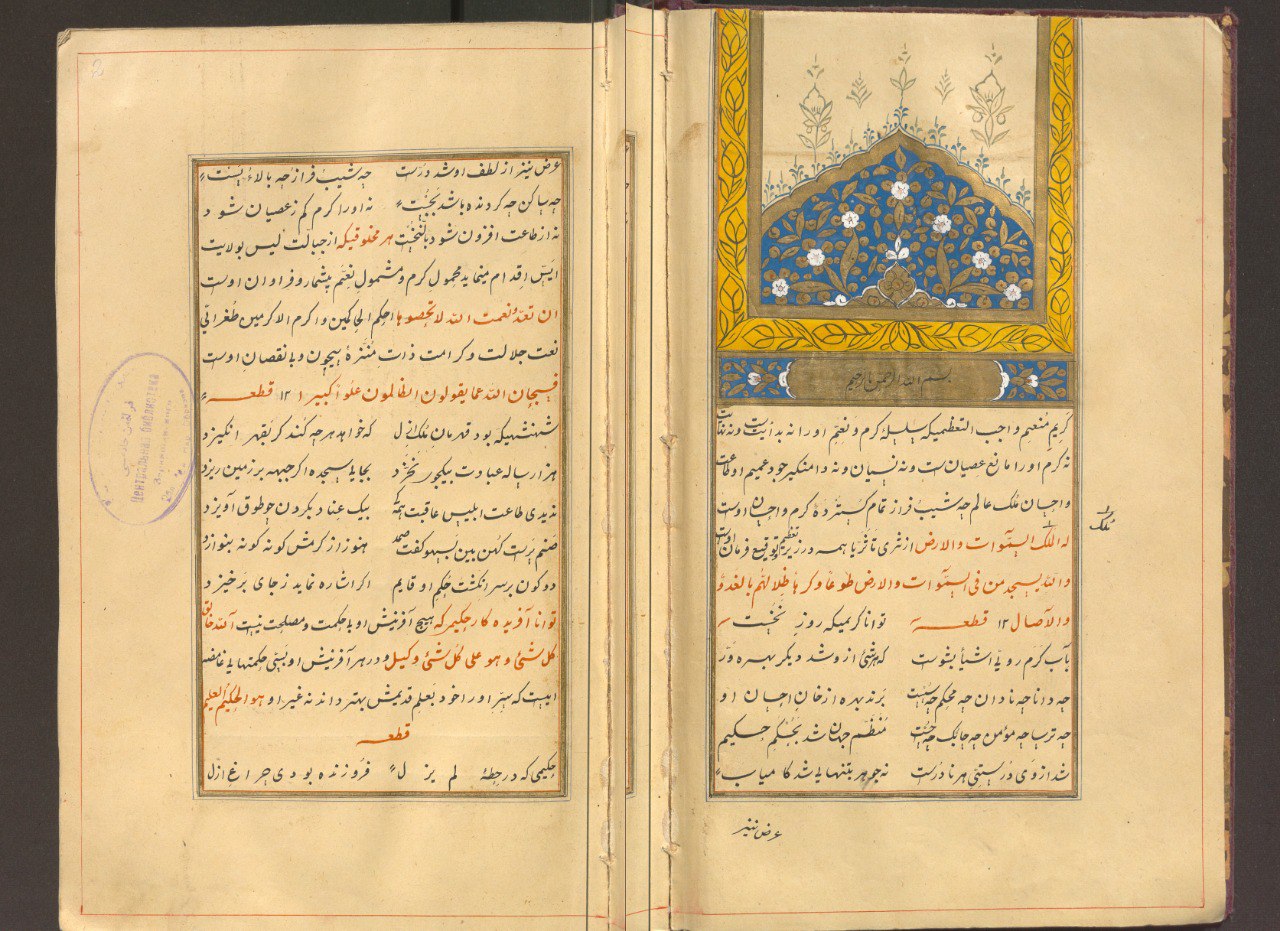 بسم الله الرحمن الرحیم
کریم منعمیم واجب التعظیمیکه سلسلهٔ کرم و نعیم او را نه بدایت است و نه نهایت
نه کرم او را مانع عصیان ست و نه نسیان و نه دامنگیر جود عمیم او طاعت
و احسان ملک عالم چه شیب فراز تمام کسترده کرم و احسان اوست
له الملک السموات والارض از ثری تا ثریا همه در زیر توقیع فرمان اوست
ولله یسجد من فی السموات والارض طوعا وکرها ظلالهم بالغدو
والآصال ۱۲ قطعه توانا کریمیکه روز نخست
بآب کرم روی اشیأ بشوست که هر شئ ازو شد دیکر بهره ور
چه دانا چه نادان چه محکم چه سست برند بهره از خان احسان او
چه ترسا چه مؤمن چه چابک چه چست منظم جهان شد بحکم حکیم
شد از وی درستئ هر نادرست نه جوهر بتنهایی شد کامیاب
عرض نیز
ملک
عرض نیز از لطف او شد درست چه شیب فراز چه بالاء پست
چه ساکن چه کردنده باشد بجنبت نه او را کرم کم ز عصیان شود
نه از طاعت افزون شود هر مخلوقیکه از جبالت لیس بولایت
ایس اقدام مینماید محمول کرم و مشمول نعم بیشمار و فراوان اوست
ان تعدوا نعمت الله لا تحصوها احکم الحاکمین و اکرم الاکرمین طغرائی
نعت جلالت و کرامت ذات منزهٔ بیچون و با نقصان اوست
فسبحان الله عما یقولون الظالمون علوا کبیرا ۱۲ قطعه
شهنشهیکه بود قهرمان ملک ازل که خواهد هر چه کند کر بقهر انکیزد
هزار ساله عبادت بیکجو نخرد بجایٔ سجده اکر جبهه بر زمین ریزد
ندیدی طاعت ابلیس عاقبت بیک عناد یکرون چو طوق آویزد
صنم پرست کهن بین بسهو کفت صمد هنوز از کرمش کونه کونه بنوازد
دو کون بر سر انکشت حکم او قایم اکر اشاره نماید ز جای برخیزد
توانا آفریده کار حکیم که هیچ آفرینش او بی حکمت و مصلحت نیست الله خالق
کل شئ وهو علی کل شئ وکیل و در هر آفرینش او بسی حکمتهایی غامضه
است که سر او را خود بعلم قدیمش بهتر داند نه غیر او هو الحکیم العلیم
قطعه
حکیمی که در حطهٔ لم یزل فروزنده بودی چراغ ازل